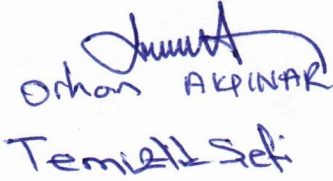 Orhan AKPINAR
Temizlik Şefi